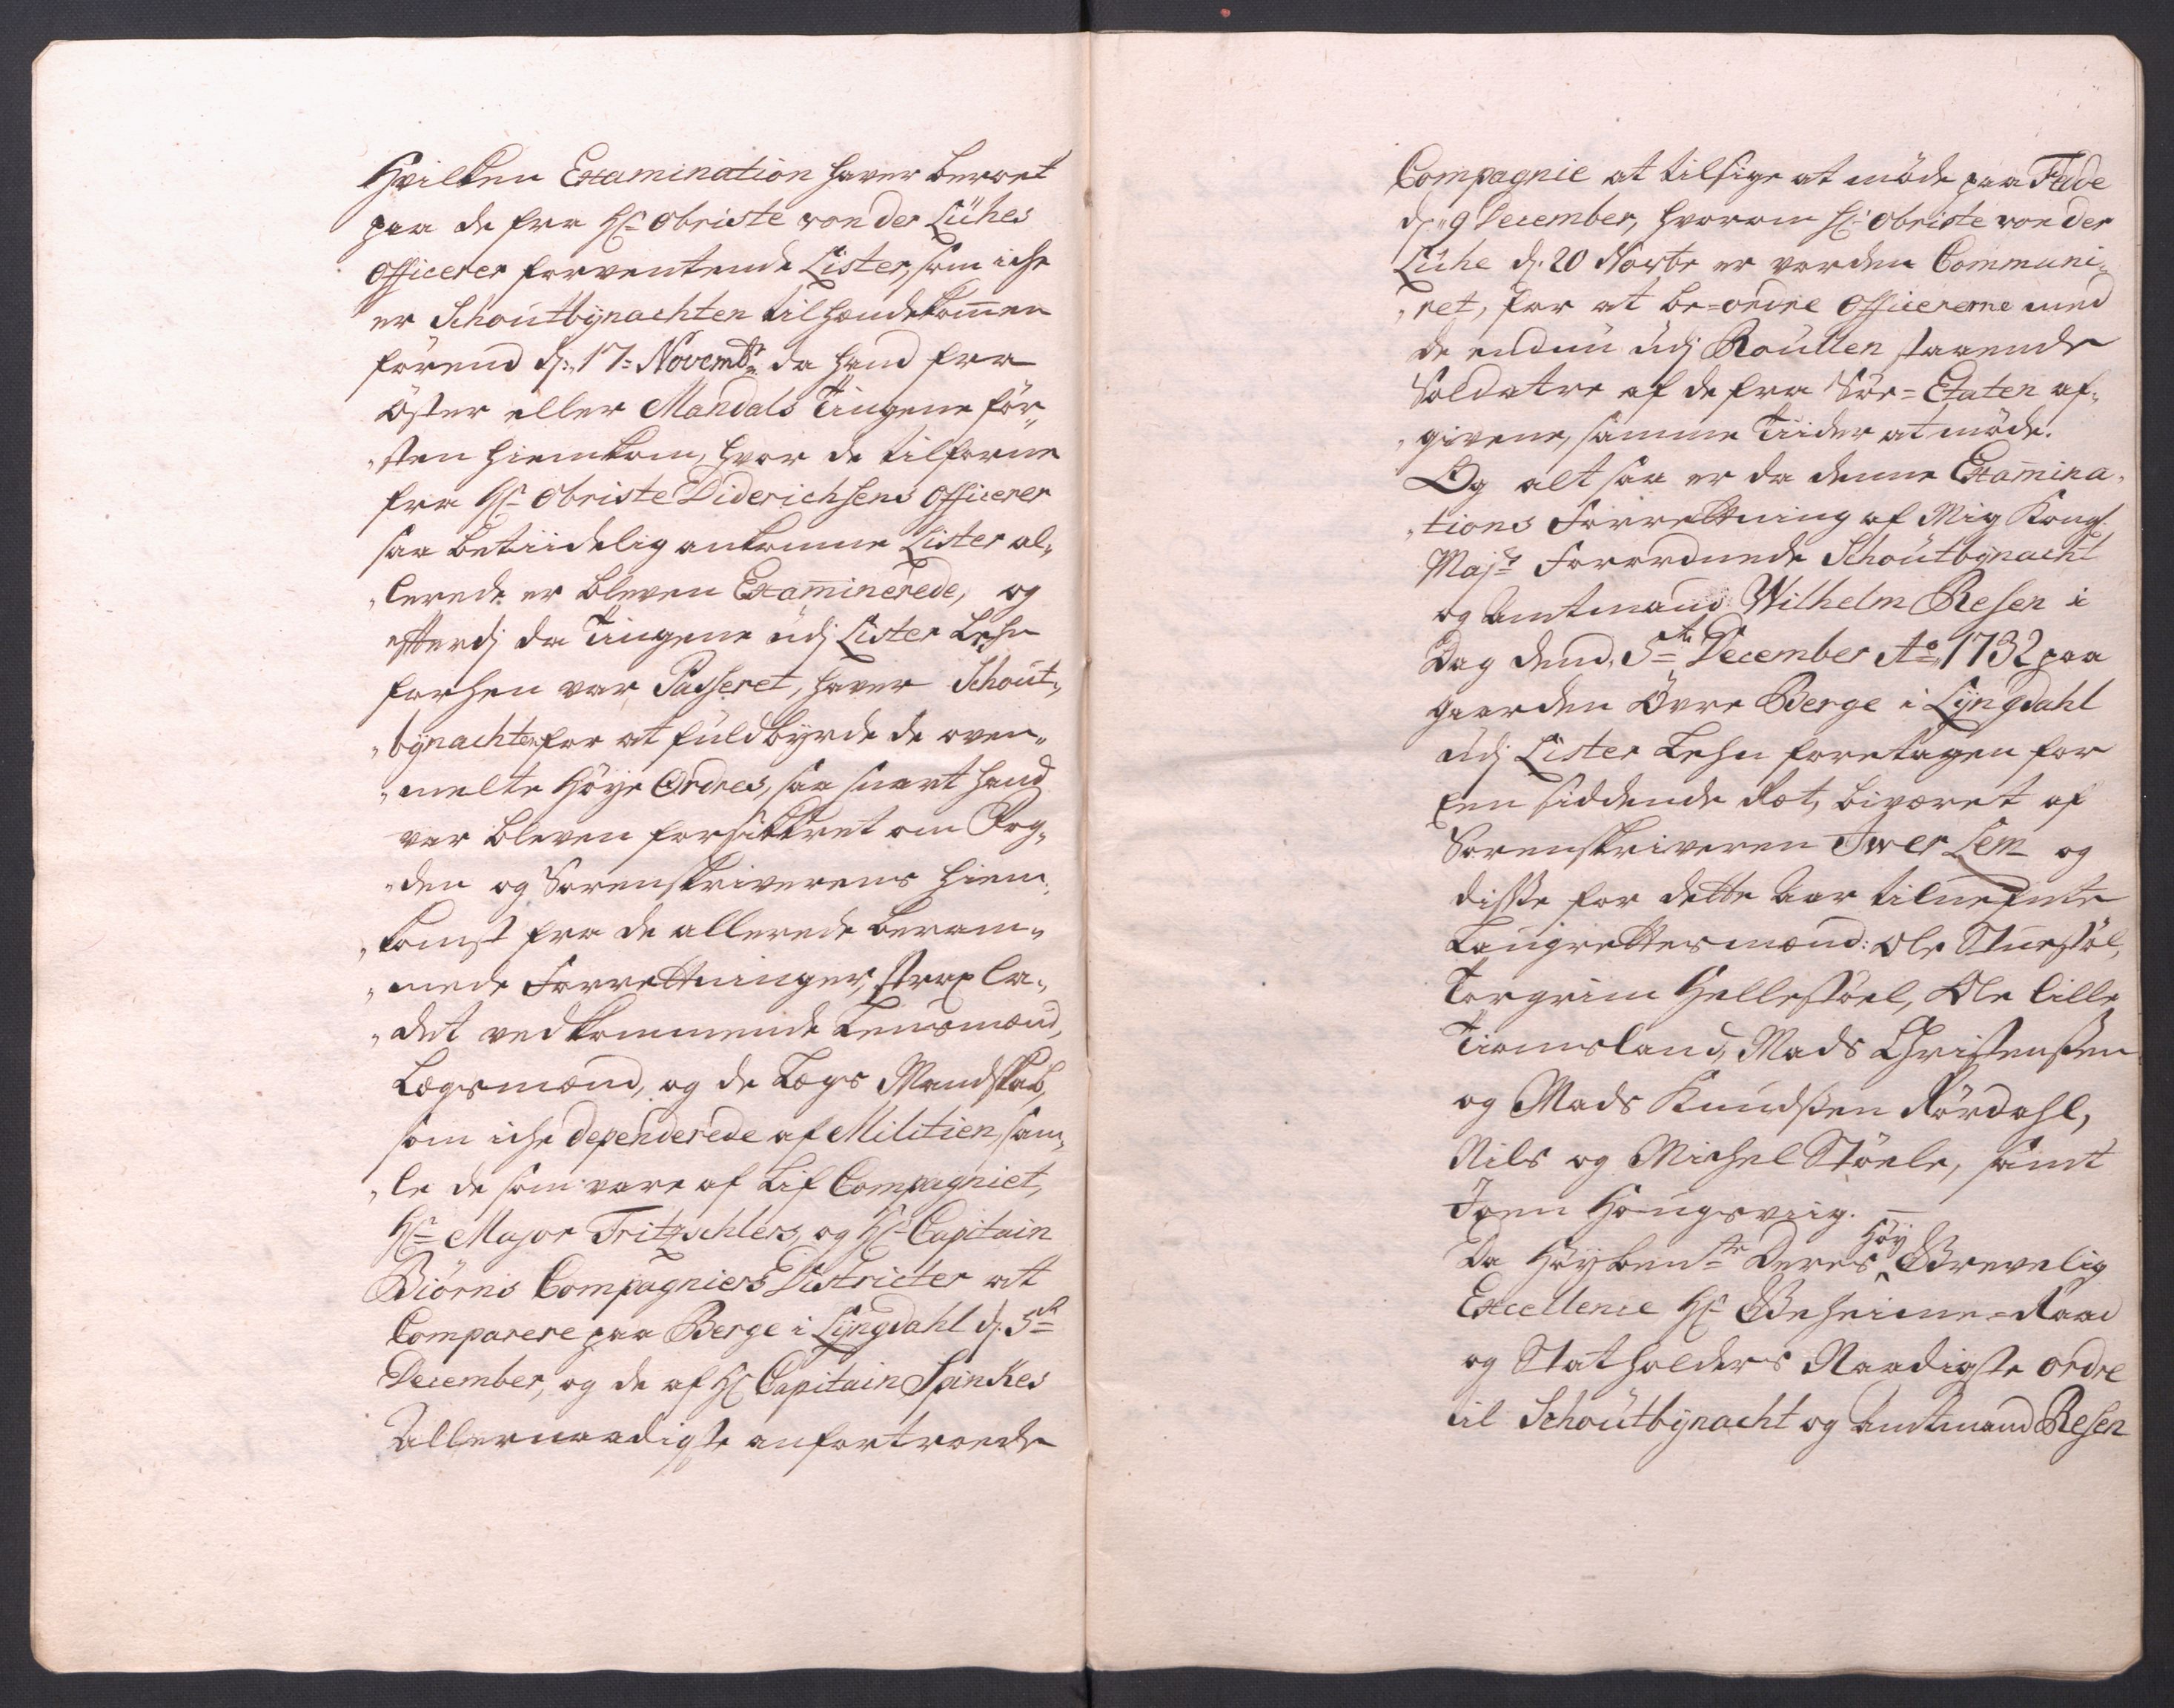 Hvilken Examination haver beroet
paa de fra Hr. Obriste von der Lühes
Officerer forventende Lister, som iche
er Schoutbynachten tilhændekommen
förend d: 17. Novembr. da hand fra
Öster eller Mandals Tingene för„
„sten hiemkom, hvor de tilforne
fra Hr. Obriste Diderichsens Officerer
saa betiidelig ankomne Lister al„
„lerede er bleven Examinerede, og
efterdj da Tingene udj Lister Lehn
forhen var Passeret, haver Schout„
„bynachten for at fuldbyrde de oven„
„melte Höye Ordres, saa snart hand
var bleven forsikkret om Fog„
„den og Sorenskriverens hiem„
„komst fra de allerede beram„
„mede Forretninger, strax la„
„det vedkommende Lensmænd,
Lægsmænd, og de Lægs Mandskab,
som iche dependerede af Militien, sam„
„le de som vare af Lif Compagniet,
Hr. Major Fritzschlers, og Hr. Capitain
Biörns Compagniers Districter at
Comparere paa Berge i Lyngdahl d. 5te
December, og de af Hr. Capitain Spinkes
Allernaadigste anfortroede
Compagnie at tilsige at möde paa Fede
d. 9 December, hvorom Hr. Obriste von der
Lühe d. 20 Novbr er vorden Communi„
„ret, for at be=ordre Officererne med
de endnu udj Roullen staaende
Soldatre af de fra Söe=Etaten af„
„givene, samme Tiider at möde.
Og alt saa er da denne Examina„
„tions Forrettning af Mig Kongl.
Majts. Forordnede Schoutbynacht
og Amtmand Wilhelm Resen i
Dag dend 5te December Ao. 1732 paa
gaarden Övre Berge i Lyngdahl
udj Lister Lehn foretagen for
Een siddende Ræt, biværet af
Sorenskriveren Iwer Lem og
disse for dette Aar tilnefnte
Laugrettesmænd: Ole Stuestöl,
Torgrim Hellestöel, Ole lille
Tiomsland, Mads Christensen
og Mads Knudsen Rördahl,
Nils og Michel Stöele, samt
Joen Houngsviig. —
Da Höyben.te Deres Höy Grevelig
Excellence Hr. Geheime=Raad
og Statholders Naadigste ordre
til Schoutbynacht og Amtmand Resen